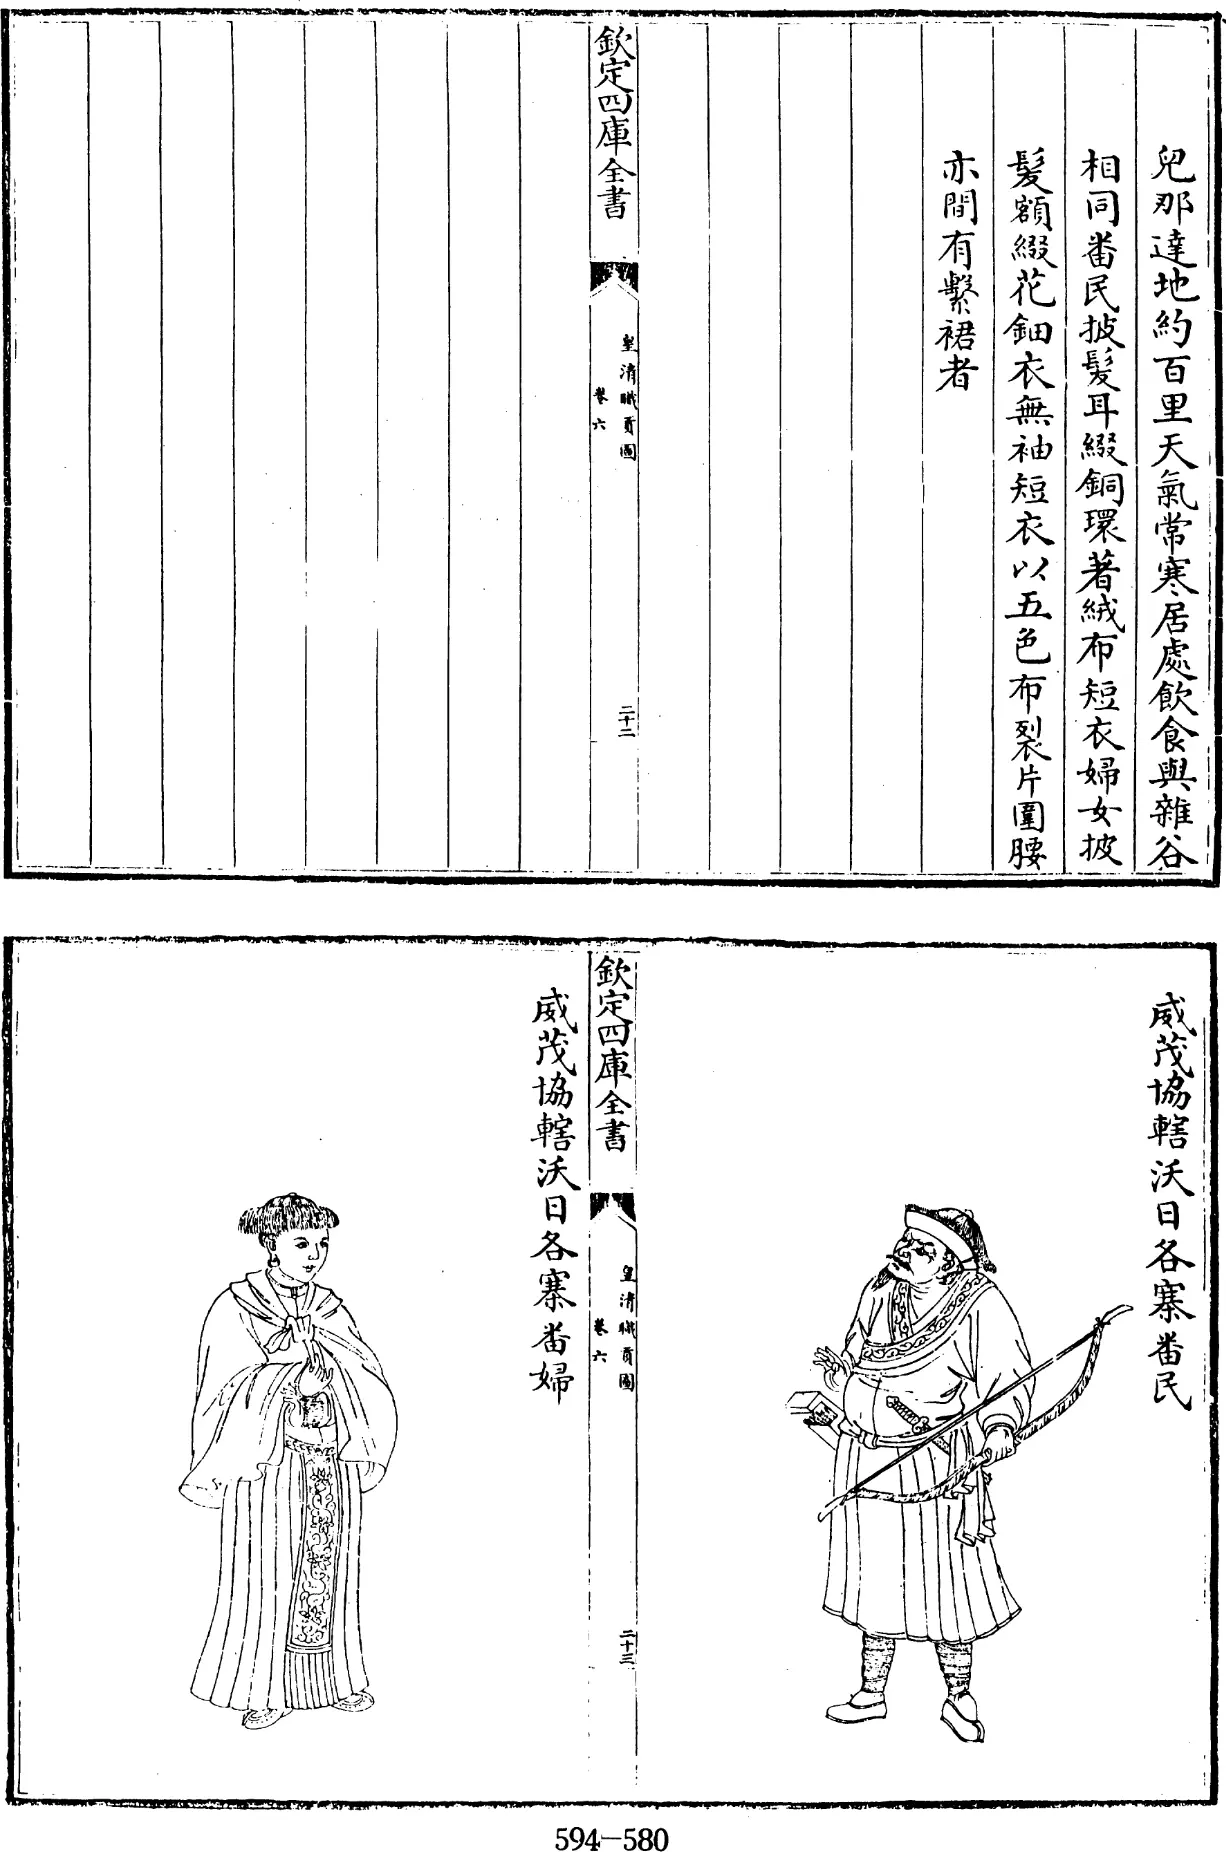 兒那達地約百里天氣常寒居處飲食與雜谷
相同番民披髮耳綴銅環著絨布短衣婦女披
髮額綴花鈿衣無袖短衣以五色布裂片圍腰
亦間有繫裙者
欽定四庫全書
皇清職貢圖
卷六
二十二
威茂協轄沃日各寨番民
欽定四庫全書
皇清職貢圖
卷六
二十三
威茂協轄沃日各寨番婦
594-580